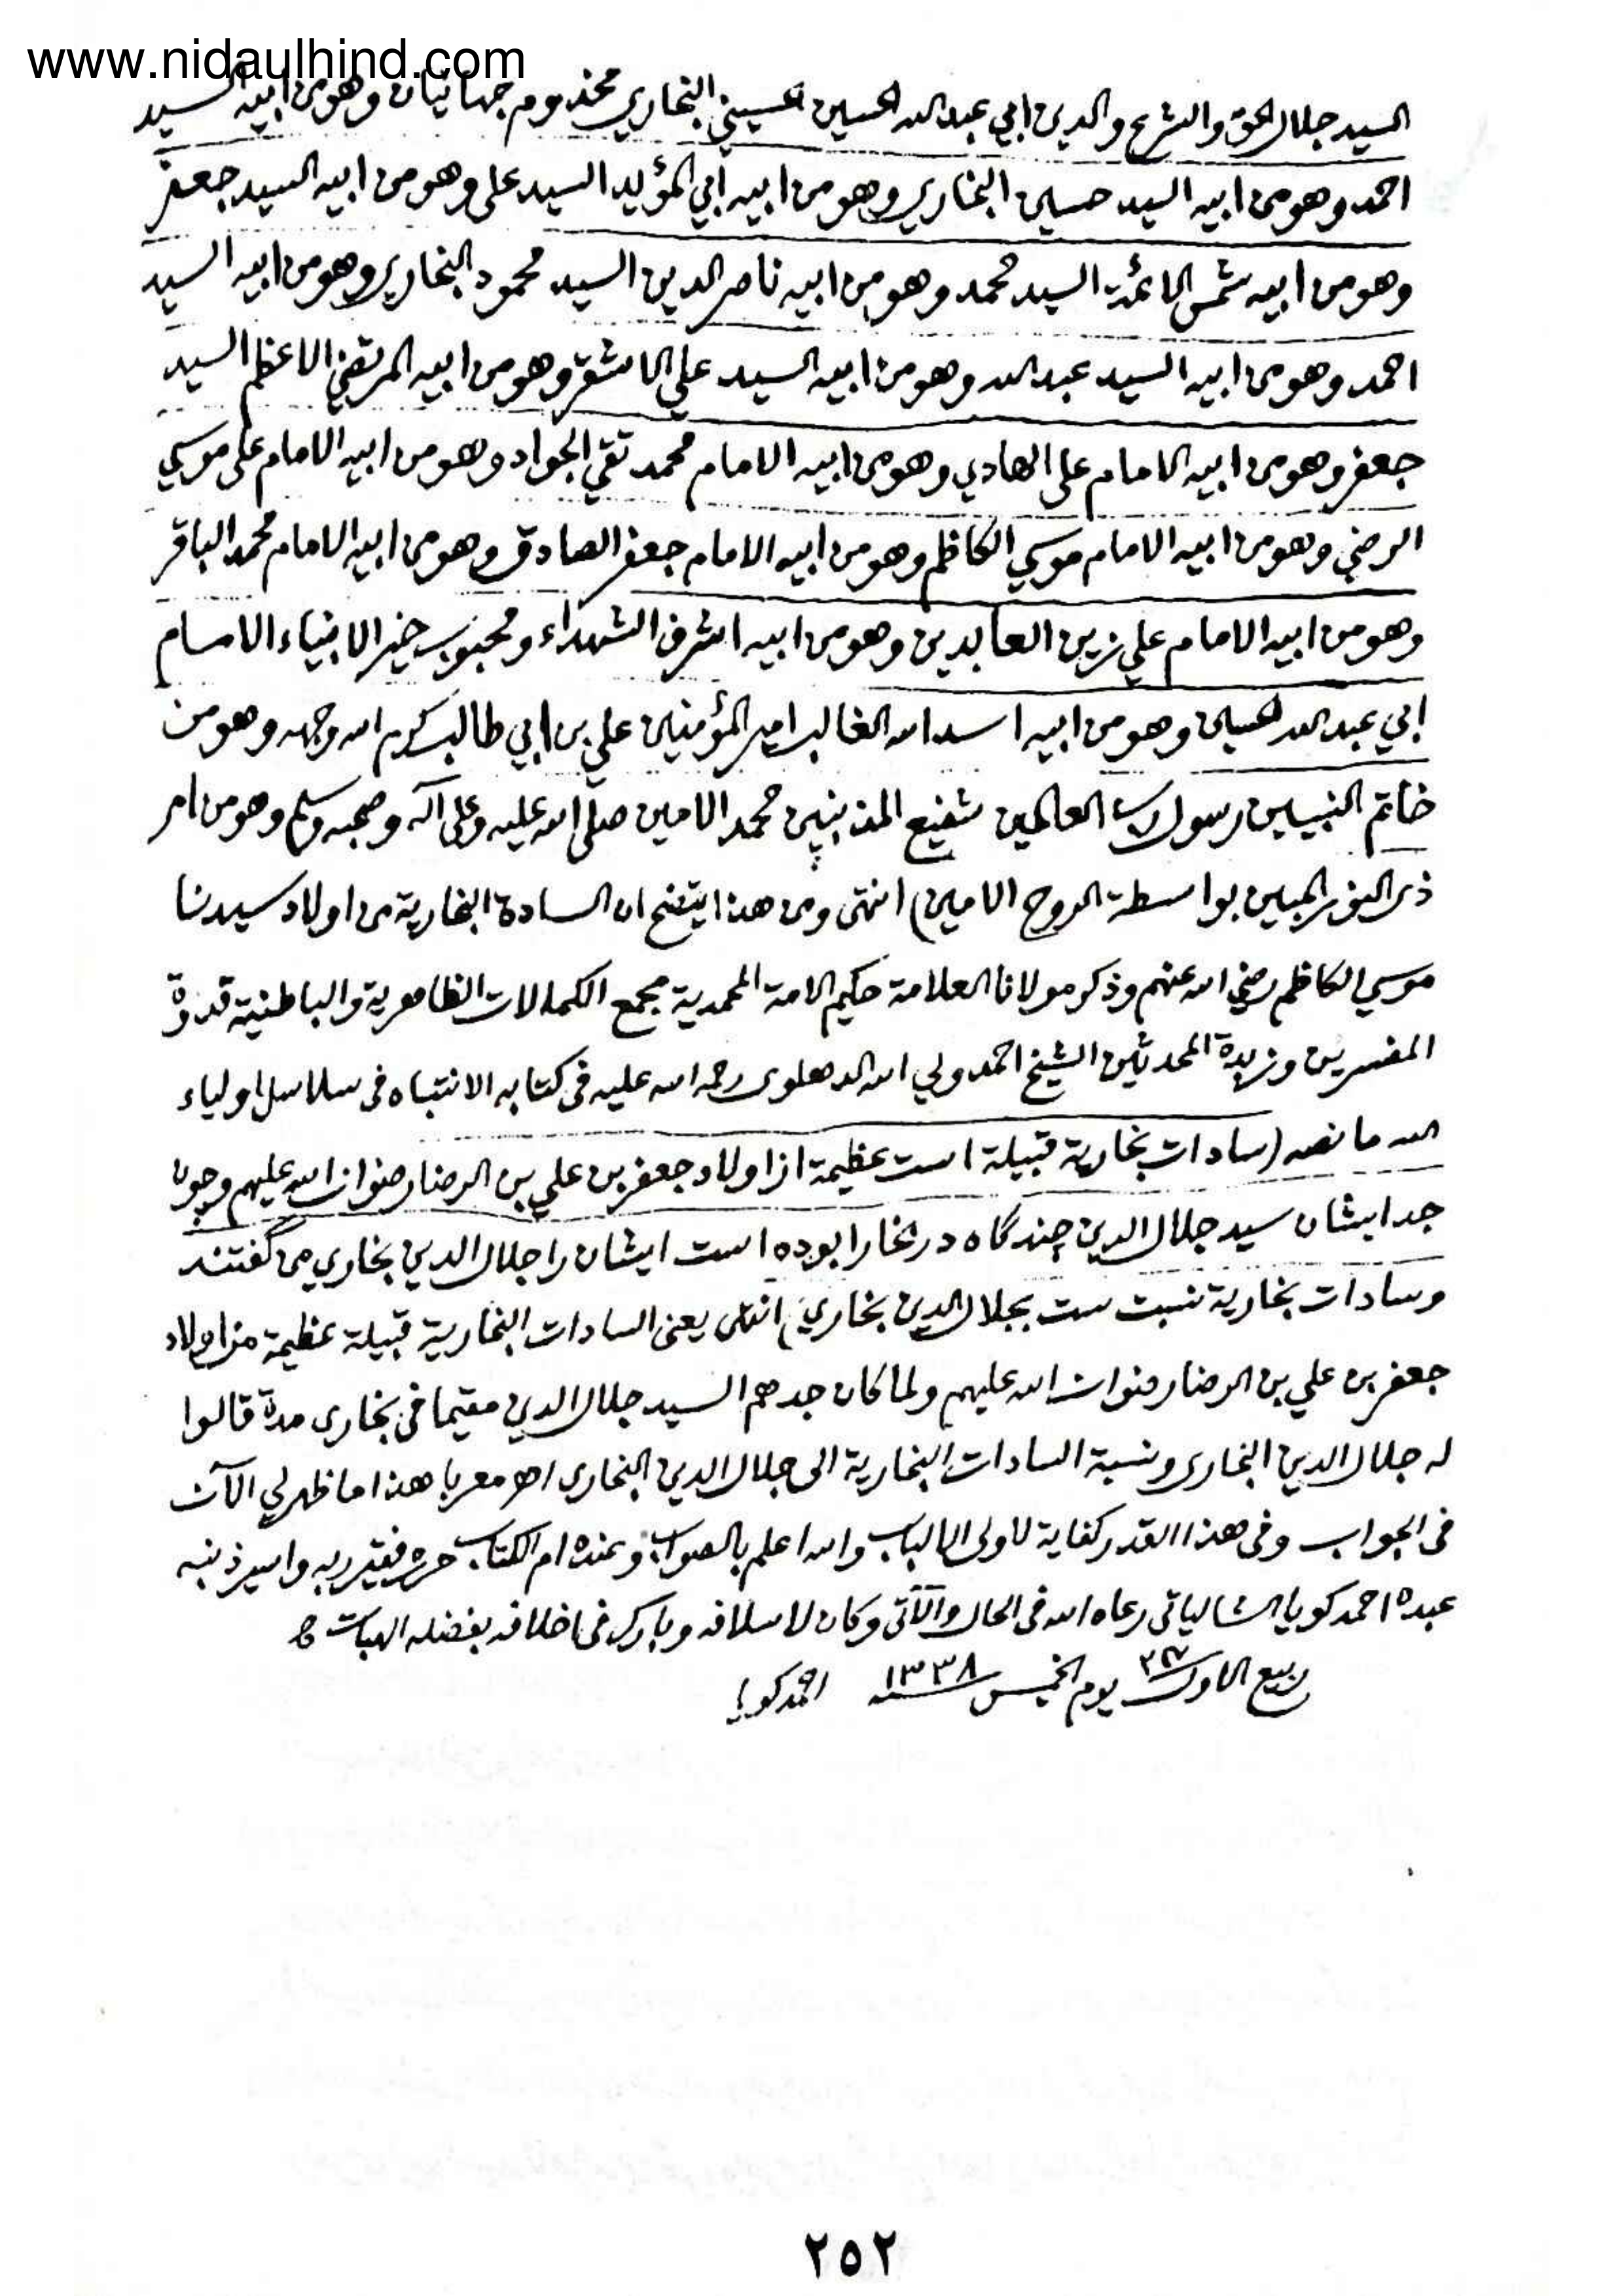 www.nidaulhind.com
السيد جلال الحق والشرع والدين ابي عبد الله الحسين الحسيني البخاري مخدوم جهانيان وهو من ابيه السيد
احمد وهو من ابيه السيد حسين البخاري وهو من ابيه أبي المؤيد السيد على وهو من ابيه السيد جعفر
وهو من ابيه شمس الائمة السيد محمد وهو من ابيه ناصر الدين السيد محمود البخاري وهو من ابيه السيد
احمد وهو من ابيه السيد عبد الله وهو من ابيه السيد علي الاشقر وهو من ابيه المرتضي الاعظم السيد
جعفر وهو من ابيه الامام على الهادي وهو من ابيه الامام محمد تقي الجواد وهو من ابيه الامام على موسي
الرضي وهو من ابيه الامام موسي الكاظم وهو من ابيه الامام جعفر الصادق وهو من ابيه الامام محمد الباقر
وهو من ابيه الامام علي زين العابدين وهو من ابيه اشرف الشهداء ومحبوب خير الانبياء الامام
ابي عبد الله الحسين وهو من ابيه اسد الله الغالب امير المؤمنين علي بن ابي طالب كرم الله وجهه وهو من
خاتم النبيين رسول رب العالمين شفيع المذنبين محمد الامين صلى الله عليه وعلى آله وصحبه وسلم وهو من امر
ذى النور المبين بواسطة الروح الامين) انتهى ومن هذا يتضح ان السادة البخارية من اولاد سيدنا
موسي الكاظم رضي الله عنهم وذكر مولانا العلامة حكيم الامة المحمدية مجمع الكمالات الظاهرية والباطنية قدوة
المفسرين وزبدة المحدثين الشيخ احمد ولي الله الدهلوى رحمه الله عليه فى كتابه الانتباه فى سلاسل اولياء
الله ما نصه (سادات بخارية قبيلة است عظيمة از اولاد جعفر بن علي بن الرضا رضوان الله عليهم وچون
جد ايشان سيد جلال الدين چند گاه در بخارا بوده است ايشان را جلال الدين بخاري مى گفتند
وسادات بخارية نسبت ست بجلال الدين بخاري) انتهى يعنى السادات البخارية قبيلة عظيمة من اولاد
جعفر بن علي بن الرضا رضوان الله عليهم ولما كان جدهم السيد جلال الدين مقيما فى بخارى مدة قالوا
له جلال الدين البخارى ونسبة السادات البخارية الى جلال الدين البخارى اهـ معربا هذا ما ظهر لي الآن
فى الجواب وفى هذا القدر كفاية لاولى الالباب والله اعلم بالصواب وعنده ام الكتاب حرره فقير ربه واسير ذنبه
عبده احمد كويا الشالياتى رعاه الله فى الحال والآتى وكان لاسلافه وبارك فى اخلافه بفضله الهبات
ربيع الاول يوم الخميس ١٣٣٨ سنه احمد كويا
٢٥٢